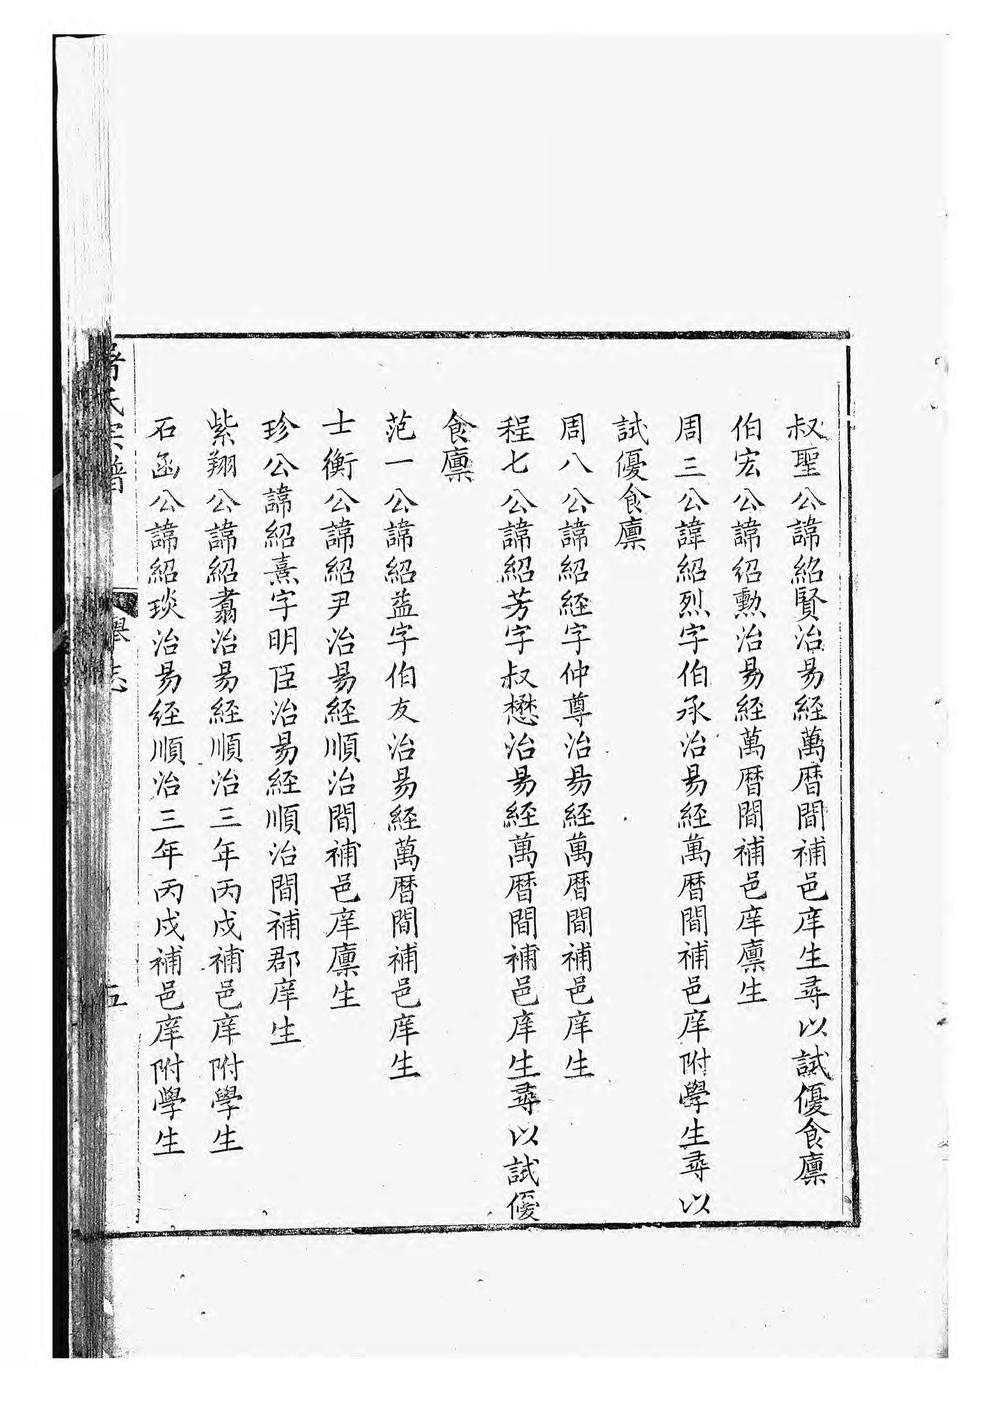 叔聖公諱紹賢治易經萬曆間補邑庠生尋以試優食廩
伯宏公諱紹勲治易經萬曆間補邑庠廩生
周三公諱紹烈字伯承治易經萬曆間補邑庠附學生尋以
試優食廩
周八公諱紹経字仲尊治易經萬曆間補邑庠生
程七公諱紹芳字叔懋治易經萬曆間補邑庠生尋以試優
食廩
范一公諱紹葢字伯友治易經萬曆間補邑庠生
士衡公諱紹尹治易經順治間補邑庠廩生
珍公諱紹熹字明臣治易經順治間補郡庠生
紫翔公諱紹翥治易經順治三年丙戌補邑庠附學生
石函公諱紹琰治易經順治三年丙戌補邑庠附學生
氏宗譜
舉志
五